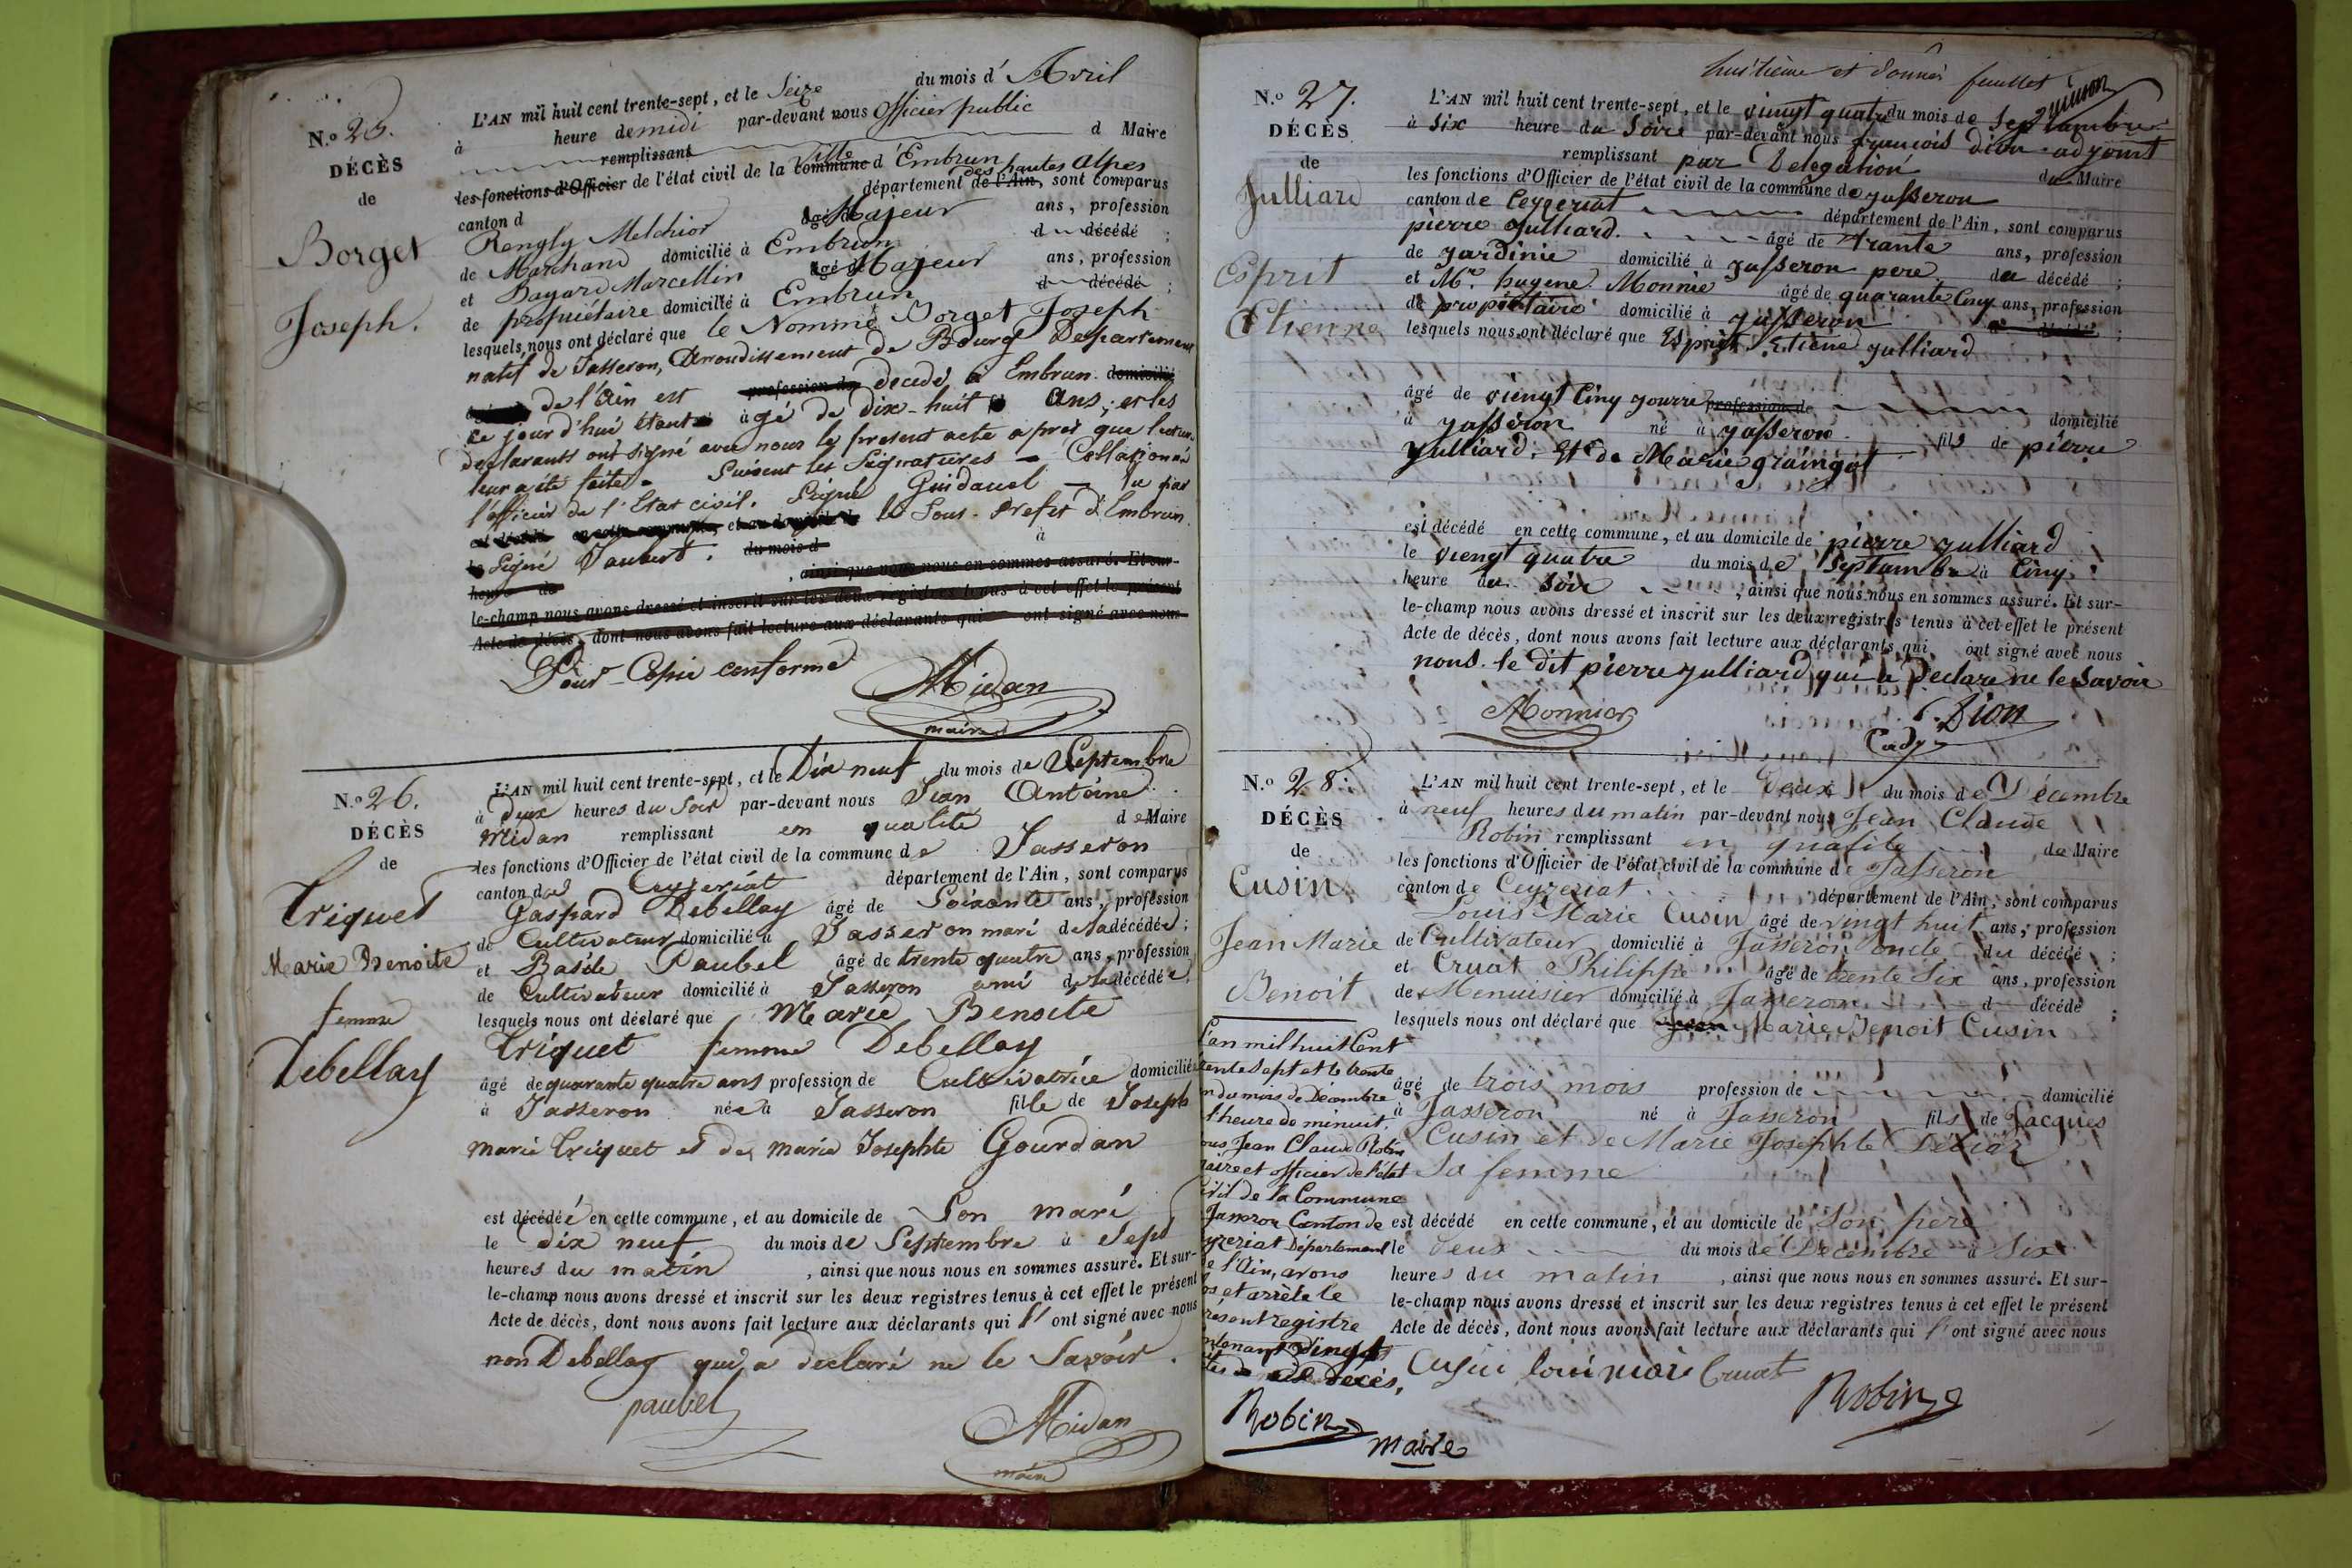 N.o 25.
DÉCÈS
de
Borget
Joseph.
L'AN mil huit cent trente-sept, et le Seize du mois d' Avril
à heure de midi par-devant nous Officier public
remplissant d Maire
les fonctions d'Officier de l'état civil de la commune Ville d'Embrun
canton d département de l'Ain, des hautes Alpes sont comparus
Rengly Melchior âgé de Majeur ans, profession
de Marchand domicilié à Embrun d décédé ;
et Bayard Marcellin âgé de Majeur ans, profession
de propriétaire domicilié à Embrun d décédé ;
lesquels nous ont déclaré que le Nommé Borget Joseph
natif de Jasseron, Arrondissement de Bourg Departement
de l'Ain est profession de decedé à Embrun domicilié
ce jour d'hui étant âgé de dix-huit ans; et les
declarants ont signé avec nous le present acte apres que lecture
leur a été faite. Suivent les Signatures - Collationné
l'officier de l'Etat civil. Signé Guidauel - Vu par
est décédé en cette commune, et au domicile de le Sous-Prefet d'Embrun.
Signé Jaubert. du mois d à
heure de , ainsi que nous nous en sommes assuré. Et sur-
le-champ nous avons dressé et inscrit sur les deux registres tenus à cet effet le présent
Acte de décès, dont nous avons fait lecture aux déclarants qui ont signé avec nous
Pour Copie conforme
Midan
maire
N.o 26.
DÉCÈS
de
Triquet
Marie Benoite
femme
Debellay
L'AN mil huit cent trente-sept, et le Dix neuf du mois de Septembre
à deux heures du Soir par-devant nous Jean Antoine
Midan remplissant en qualité de Maire
les fonctions d'Officier de l'état civil de la commune de Jasseron
canton de Ceyzeriat département de l'Ain, sont comparus
Gaspard Debellay âgé de Soixante ans, profession
de Cultivateur domicilié à Jasseron mari de la décédée ;
et Basile Paubel âgé de trente quatre ans, profession
de Cultivateur domicilié à Jasseron ami de la décédée ;
lesquels nous ont déclaré que Marie Benoite
Triquet femme Debellay
âgé de quarante quatre ans profession de Cultivatrice domiciliée
à Jasseron née à Jasseron fille de Joseph
marie Triquet et de marie Josephte Gourdan
est décédée en cette commune, et au domicile de Son mari
le dix neuf du mois de Septembre à Sept
heures du matin , ainsi que nous nous en sommes assuré. Et sur-
le-champ nous avons dressé et inscrit sur les deux registres tenus à cet effet le présent
Acte de décès, dont nous avons fait lecture aux déclarants qui l' ont signé avec nous
non Debellay qui a declaré ne le Savoir.
paubel
Midan
maire
huitième et dernier feuillet
N.o 27.
DÉCÈS
de
Julliard
Esprit
Etienne
L'AN mil huit cent trente-sept, et le vingt quatre du mois de Septambre
à Six heure du Soire par-devant nous françois dion adjoint
remplissant par Delegation du Maire
les fonctions d'Officier de l'état civil de la commune de jasseron
canton de Ceyzeriat département de l'Ain, sont comparus
pierre julliard. âgé de trante ans, profession
de jardinie domicilié à jasseron pere du décédé ;
et Mr. hugene Monnie âgé de quarante Cinq ans, profession
de propiétaire domicilié à jasseron d décédé ;
lesquels nous ont déclaré que Esprit Etiene julliard
âgé de viengt Cinq jourre profession de domicilié
à jasseron né à jasseron fils de pierre
julliard. Et de Marie graingot
est décédé en cette commune, et au domicile de pierre julliard
le viengt quatre du mois de Septambre à Cinq
heure du soir , ainsi que nous nous en sommes assuré. Et sur-
le-champ nous avons dressé et inscrit sur les deux registres tenus à cet effet le présent
Acte de décès, dont nous avons fait lecture aux déclarants qui ont signé avec nous
nous. le dit pierre julliard qui a Declare ne le Savoir
Monnier
Dion
N.o 28.
DÉCÈS
de
Cusin
Jean Marie
Benoit
L'AN mil huit cent trente-sept, et le Deux du mois de Décembre
à neuf heures du matin par-devant nous Jean Claude
Robin remplissant en qualité de Maire
les fonctions d'Officier de l'état civil de la commune de Jasseron
canton de Ceyzeriat département de l'Ain, sont comparus
Louis Marie Cusin âgé de vingt huit ans, profession
de Cultivateur domicilié à Jasseron oncle du décédé ;
et Cruat Philippe âgé de trente Six ans, profession
de Menuisier domicilié à Jasseron d décédé ;
lesquels nous ont déclaré que Jean Marie Benoit Cusin
âgé de trois mois profession de domicilié
à Jasseron né à Jasseron fils de Jacques
Cusin et de Marie Josephte
Sa femme
est décédé en cette commune, et au domicile de Son père
le deux du mois de Decembre à Six
heures du matin , ainsi que nous nous en sommes assuré. Et sur-
le-champ nous avons dressé et inscrit sur les deux registres tenus à cet effet le présent
Acte de décès, dont nous avons fait lecture aux déclarants qui l' ont signé avec nous
Cusin loui marie Cruat
Robin
L'an mil huit Cent
ente Sept et le trente
n du mois de Décembre
l'heure de minuit,
ous Jean Claude Robin
aire et officier de l'état
ivil de la Commune
Jasseron Canton de
yzeriat Département
e l'Ain, avons
os et arrêté le
résent registre
ntenant vingt
de Décès,
Robin
maire